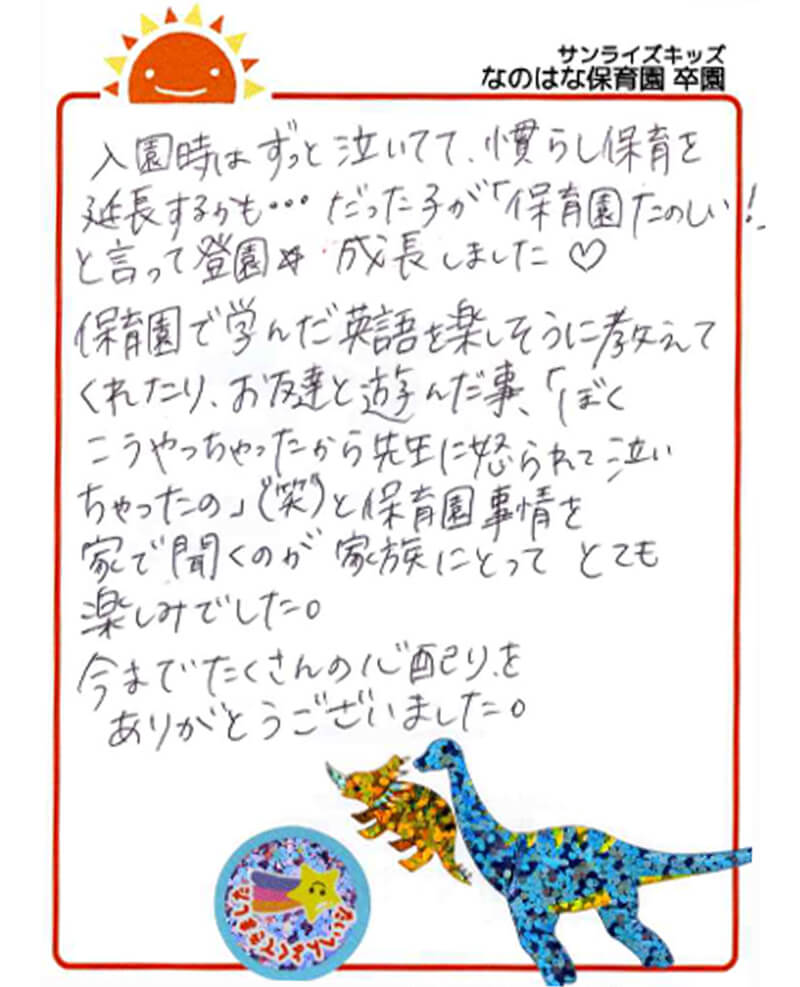 サンライズキッズ
なのはな保育園 卒園
入園時はずっと泣いてて、慣らし保育を
延長するかも…だった子が「保育園たのしい!
と言って登園☆ 成長しました♡
保育園で学んだ英語を楽しそうに教えて
くれたり、お友達と遊んだ事、「ぼく
こうやっちゃったから先生に怒られて泣い
ちゃったの」(笑)と保育園事情を
家で聞くのが 家族にとって とても
楽しみでした。
今までたくさんの心配りを
ありがとうございました。
たいへんよくできました